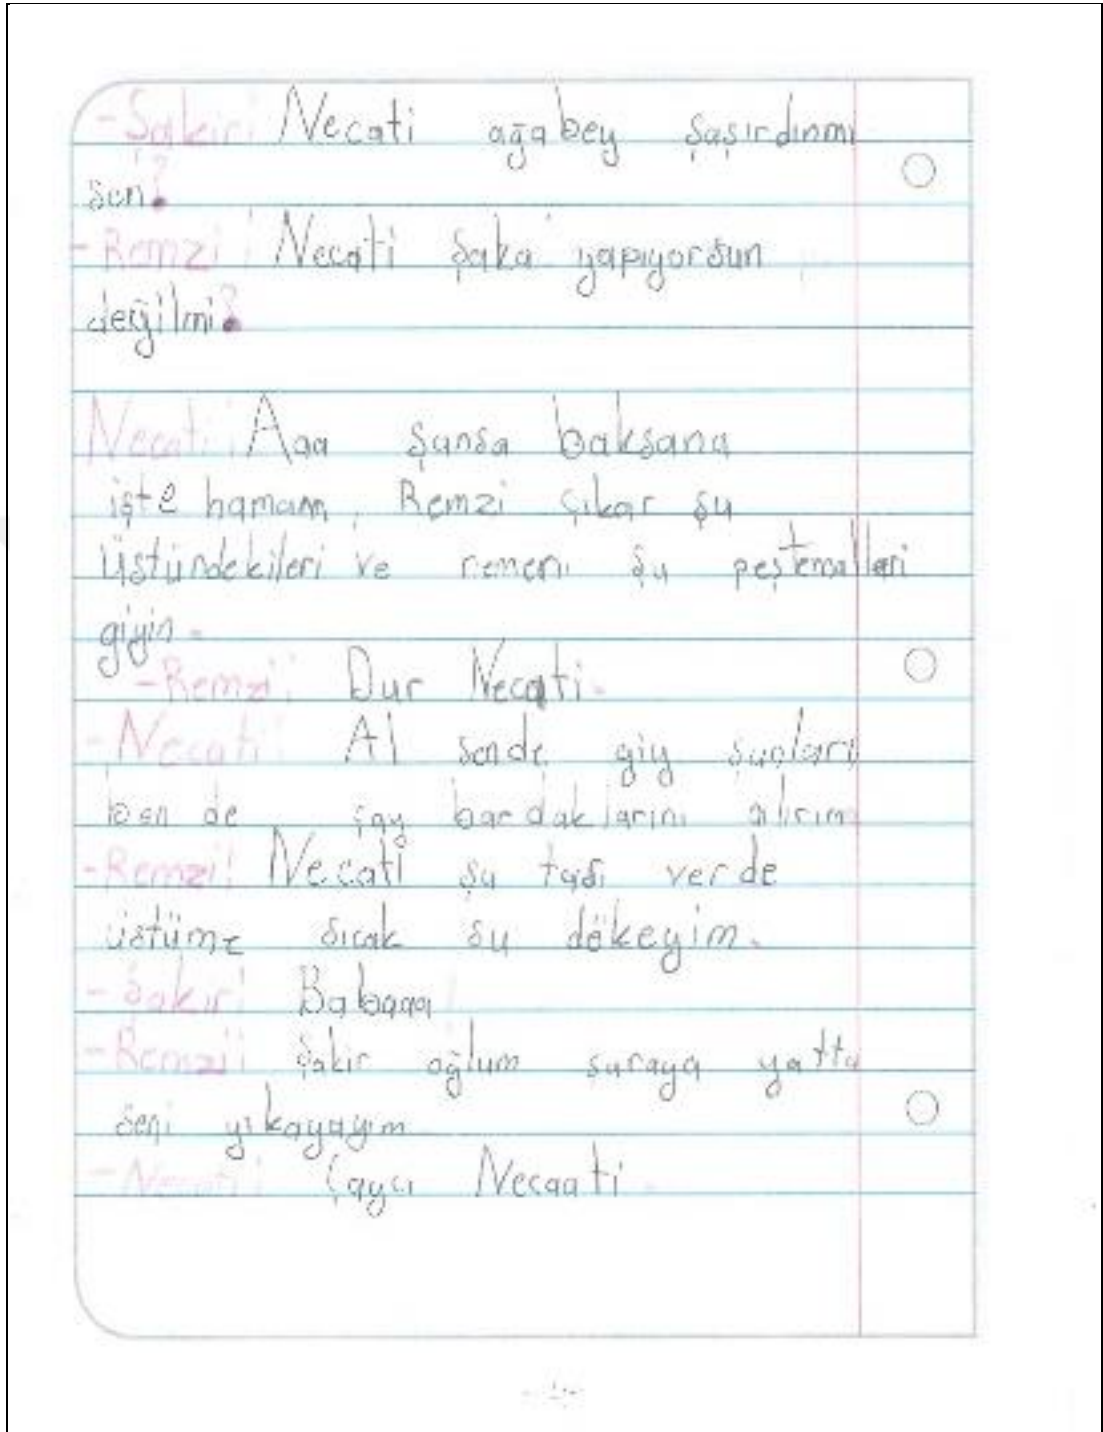 -Şakir: Necati ağabey şaşırdınmı
sen?
-Remzi: Necati şaka yapıyorsun
değilmi?
Necati: Aaa şansa baksana
işte hamam, Remzi çıkar şu
üstündekileri ve hemen şu peştemalleri
giyin.
-Remzi: Dur Necati.
-Necati: Al sende giy şunları
ben de çay bardaklarını alırım
-Remzi: Necati şu tası verde
üstüme sıcak su dökeyim.
-Şakir: Babaaa!
-Remzi: Şakir oğlum şuraya yatta
seni yıkayayım
-Necati: Çaycı Necaati.